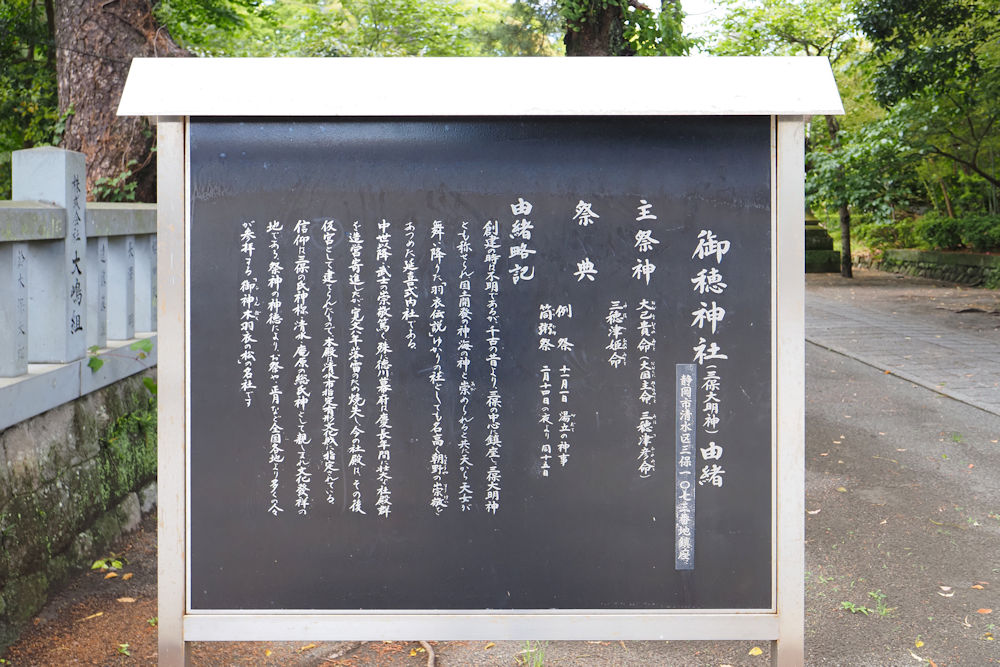 御穂神社（三保大明神）由緒
静岡市清水区三保一〇七三番地鎮座
主祭神　大己貴命（大国主命　三穂津彦命）
三穂津姫命
祭典　例祭　十一月一日　湯立の神事
筒粥祭　二月十四日の夜より同十五日
由緒略記
創建の時は不明であるが、千古の昔より、三保の中心に鎮座し、三保大明神
とも称せられ国土開発の神、海の神と崇められると共に天から天女が
舞い降りた「羽衣伝説」ゆかりの社としても名高く、朝野の崇敬を
あつめた延喜式内社である。
中世以降、武士の崇敬篤く、殊に徳川幕府は慶長年間に壮大な社殿群
を造営寄進したが、寛文八年落雷のため焼失し、今の社殿は、その後
仮宮として建てられたもので本殿は清水市指定有形文化財に指定されている。
信仰は三保の氏神様、清水・庵原の総氏神として親しまれ、文化発祥の
地であり、祭神の神徳により、お祭や正月など全国各地より多くの人々
が参拝する。「御神木羽衣の松」の名社です
株式会社　大嶋組